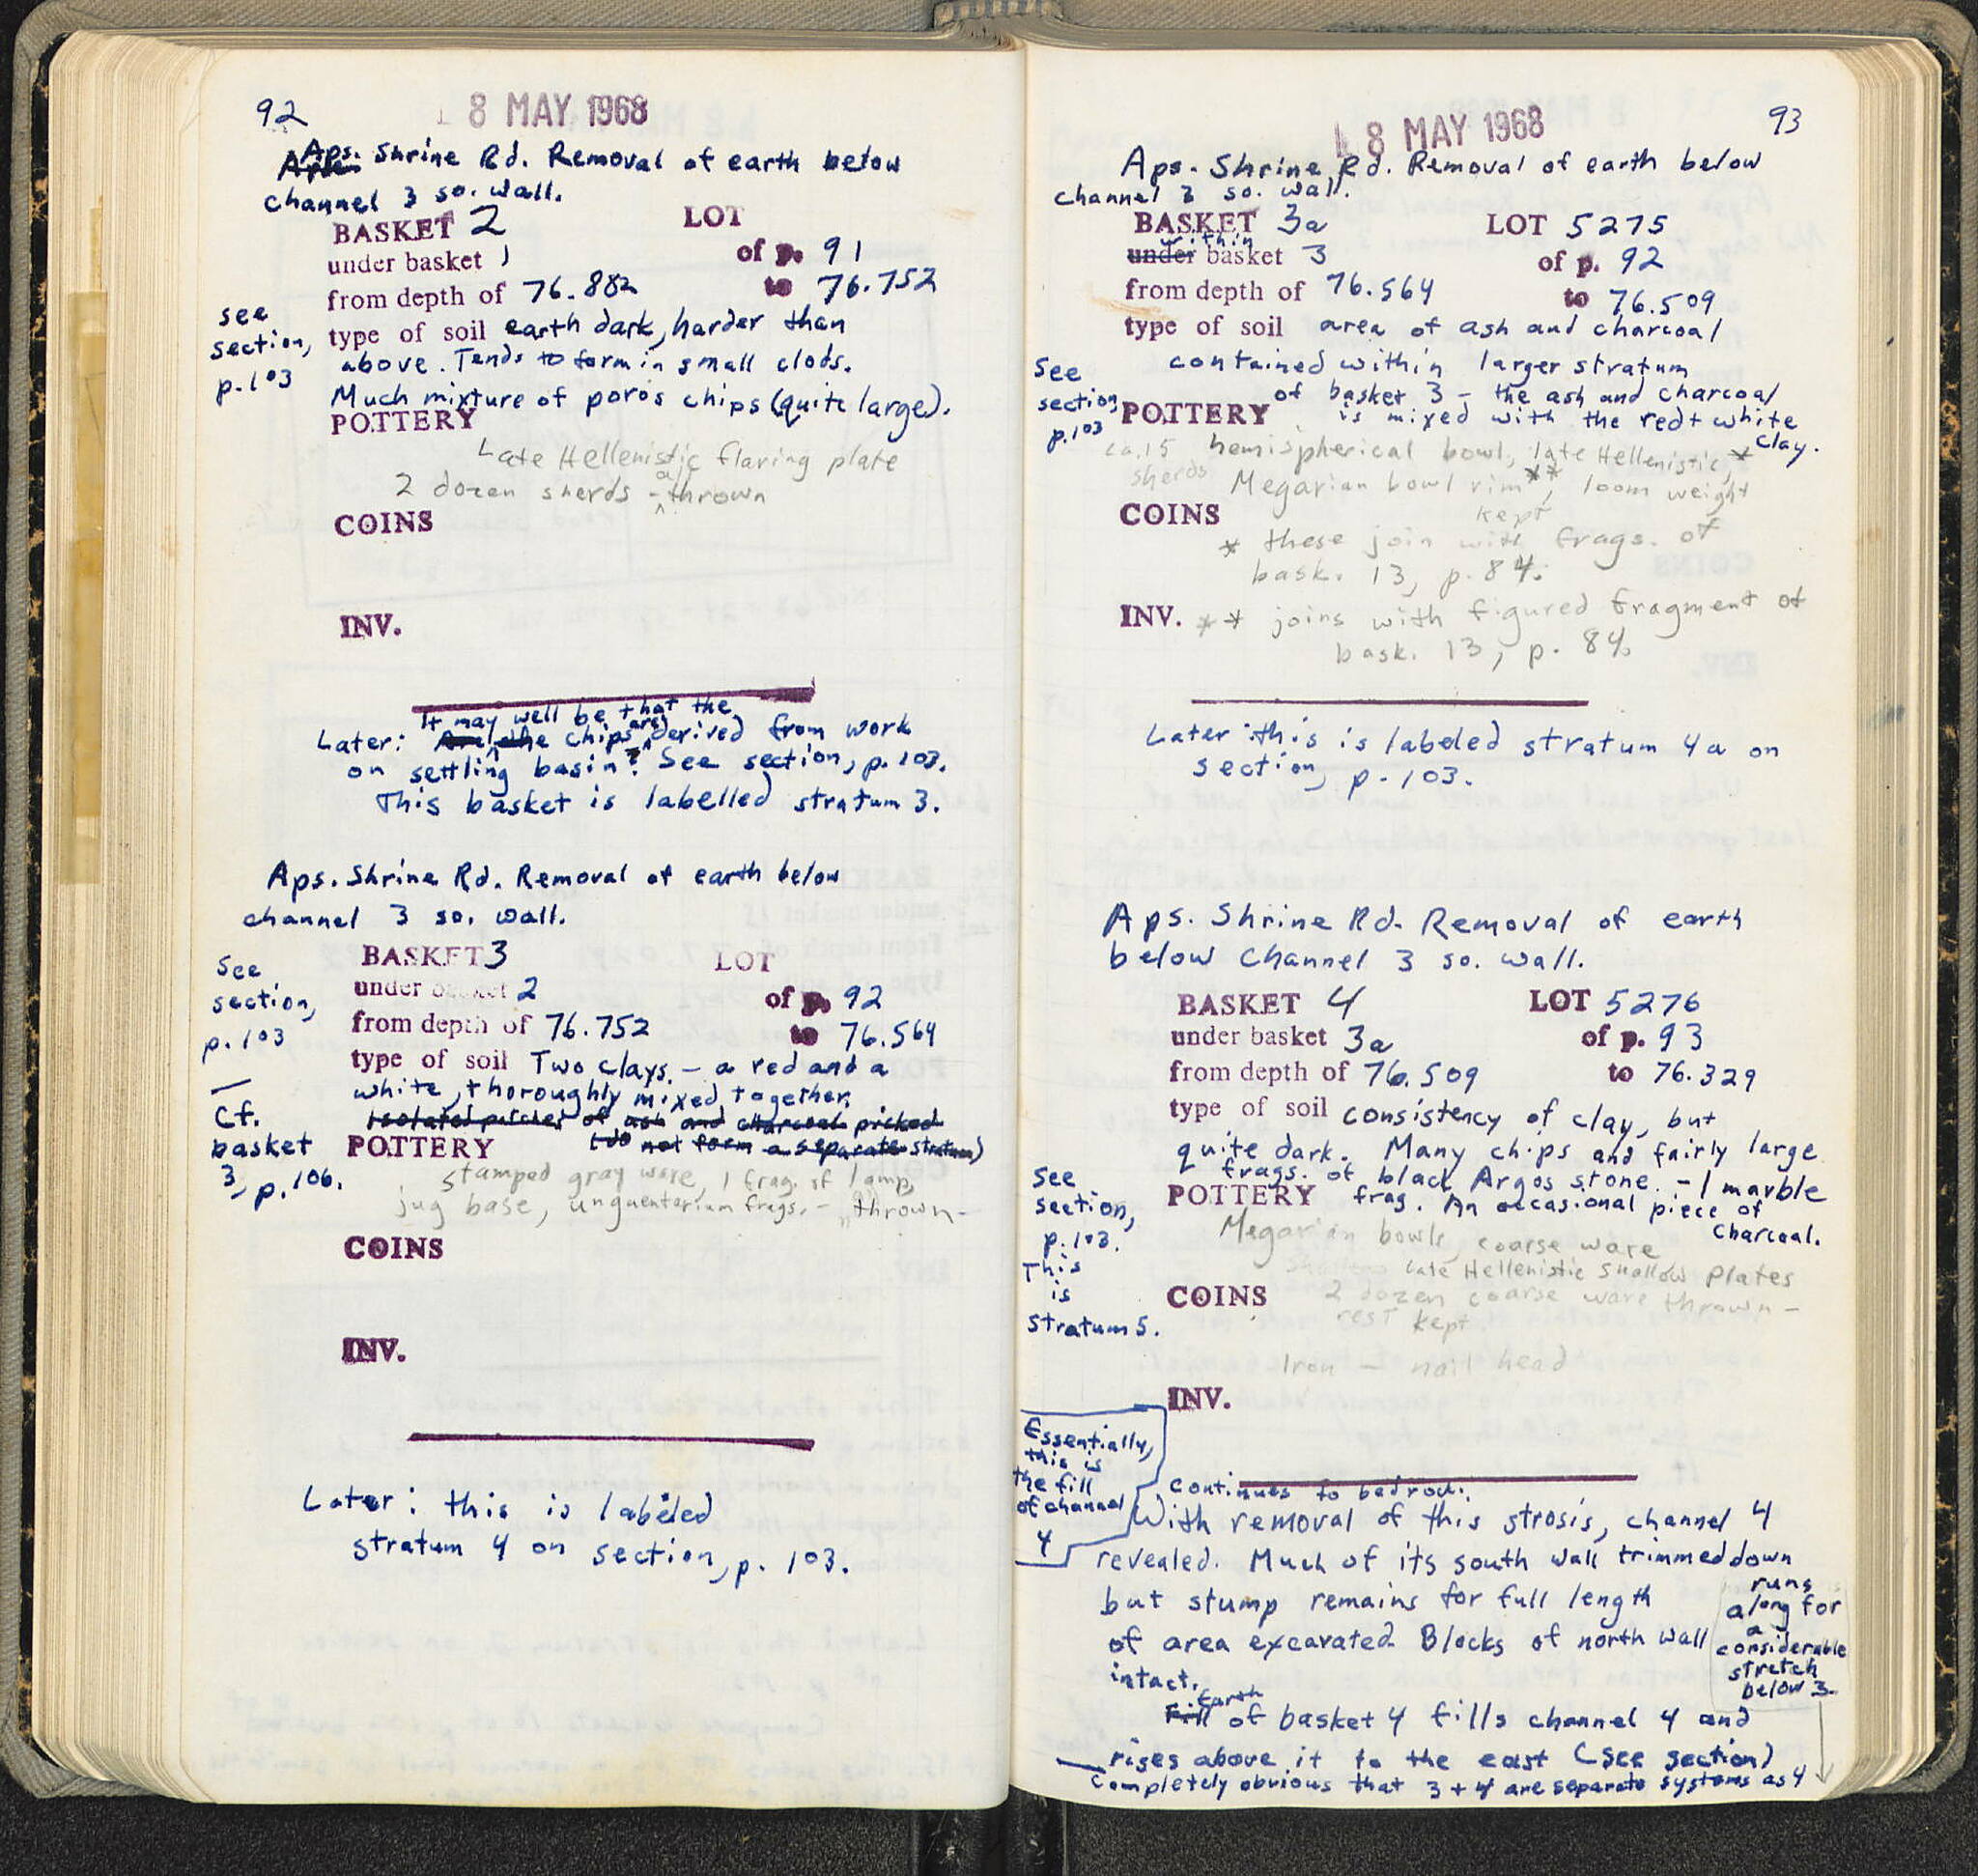 92
18 MAY 1968
Aps. Shrine Rd. Removal of earth below
channel 3 so. wall.
BASKET 2 LOT
under basket 1 of p. 91
from depth of 76.882 to 76.752
see
section,
p. 103
type of soil earth dark, harder than
above. Tends to form in small clods.
Much mixture of poros chips (quite large).
POTTERY
Late Hellenistic flaring plate
2 dozen sherds - all thrown
COINS
INV.
It may well be that the
Later: Are the chips are derived from work
on settling basin? See section, p. 103.
This basket is labelled stratum 3.
Aps. Shrine Rd. Removal of earth below
channel 3 so. wall.
BASKET 3 LOT
under basket 2 of p. 92
from depth of 76.752 to 76.564
See
section,
p. 103
—
Cf.
basket
3, p. 106.
type of soil Two clays. - a red and a
white, thoroughly mixed together.
Isolated patches of ash and charcoal picked
(do not form a separate stratum)
POTTERY
stamped gray ware, 1 frag. of lamp,
jug base, unguentarium frags. - thrown -
COINS
INV.
Later: this is labeled
stratum 4 on section, p. 103.
93
18 MAY 1968
Aps. Shrine Rd. Removal of earth below
channel 3 so. wall.
BASKET 3a LOT 5275
within
under basket 3 of p. 92
from depth of 76.564 to 76.509
type of soil area of ash and charcoal
contained within larger stratum
of basket 3 - the ash and charcoal
is mixed with the red + white
clay.
See
section,
p. 103
POTTERY
ca. 15 hemispherical bowl, late Hellenistic,*
sherds Megarian bowl rim**, loom weight
kept
COINS
* these join with frags. of
bask. 13, p. 84.
INV.
** joins with figured fragment of
bask. 13, p. 84.
Later: this is labeled stratum 4a on
section, p. 103.
Aps. Shrine Rd. Removal of earth
below channel 3 so. wall.
BASKET 4 LOT 5276
under basket 3a of p. 93
from depth of 76.509 to 76.329
type of soil consistency of clay, but
quite dark. Many chips and fairly large
frags. of black Argos stone. - 1 marble
frag. An occasional piece of
charcoal.
See
section,
p. 103.
This
is
stratum 5.
POTTERY
Megarian bowls, coarse ware
Shallow Late Hellenistic shallow plates
COINS
2 dozen coarse ware thrown -
rest kept
Iron - nail head
INV.
Essentially,
this is
the fill
of channel
4
continues to bedrock.
With removal of this strosis, channel 4
revealed. Much of its south wall trimmed down
but stump remains for full length
of area excavated. Blocks of north wall
intact.
Earth
Fill of basket 4 fills channel 4 and
rises above it to the east (see section)
Completely obvious that 3 + 4 are separate systems as 4
runs
along for
a
considerable
stretch
below 3.